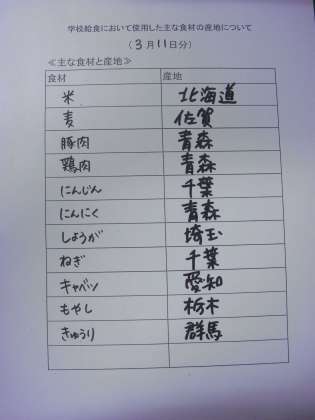 学校給食において使用した主な食材の産地について
(3月11日分)
≪主な食材と産地≫
食材 産地
米 北海道
麦 佐賀
豚肉 青森
鶏肉 青森
にんじん 千葉
にんにく 青森
しょうが 埼玉
ねぎ 千葉
キャベツ 愛知
もやし 栃木
きゅうり 群馬